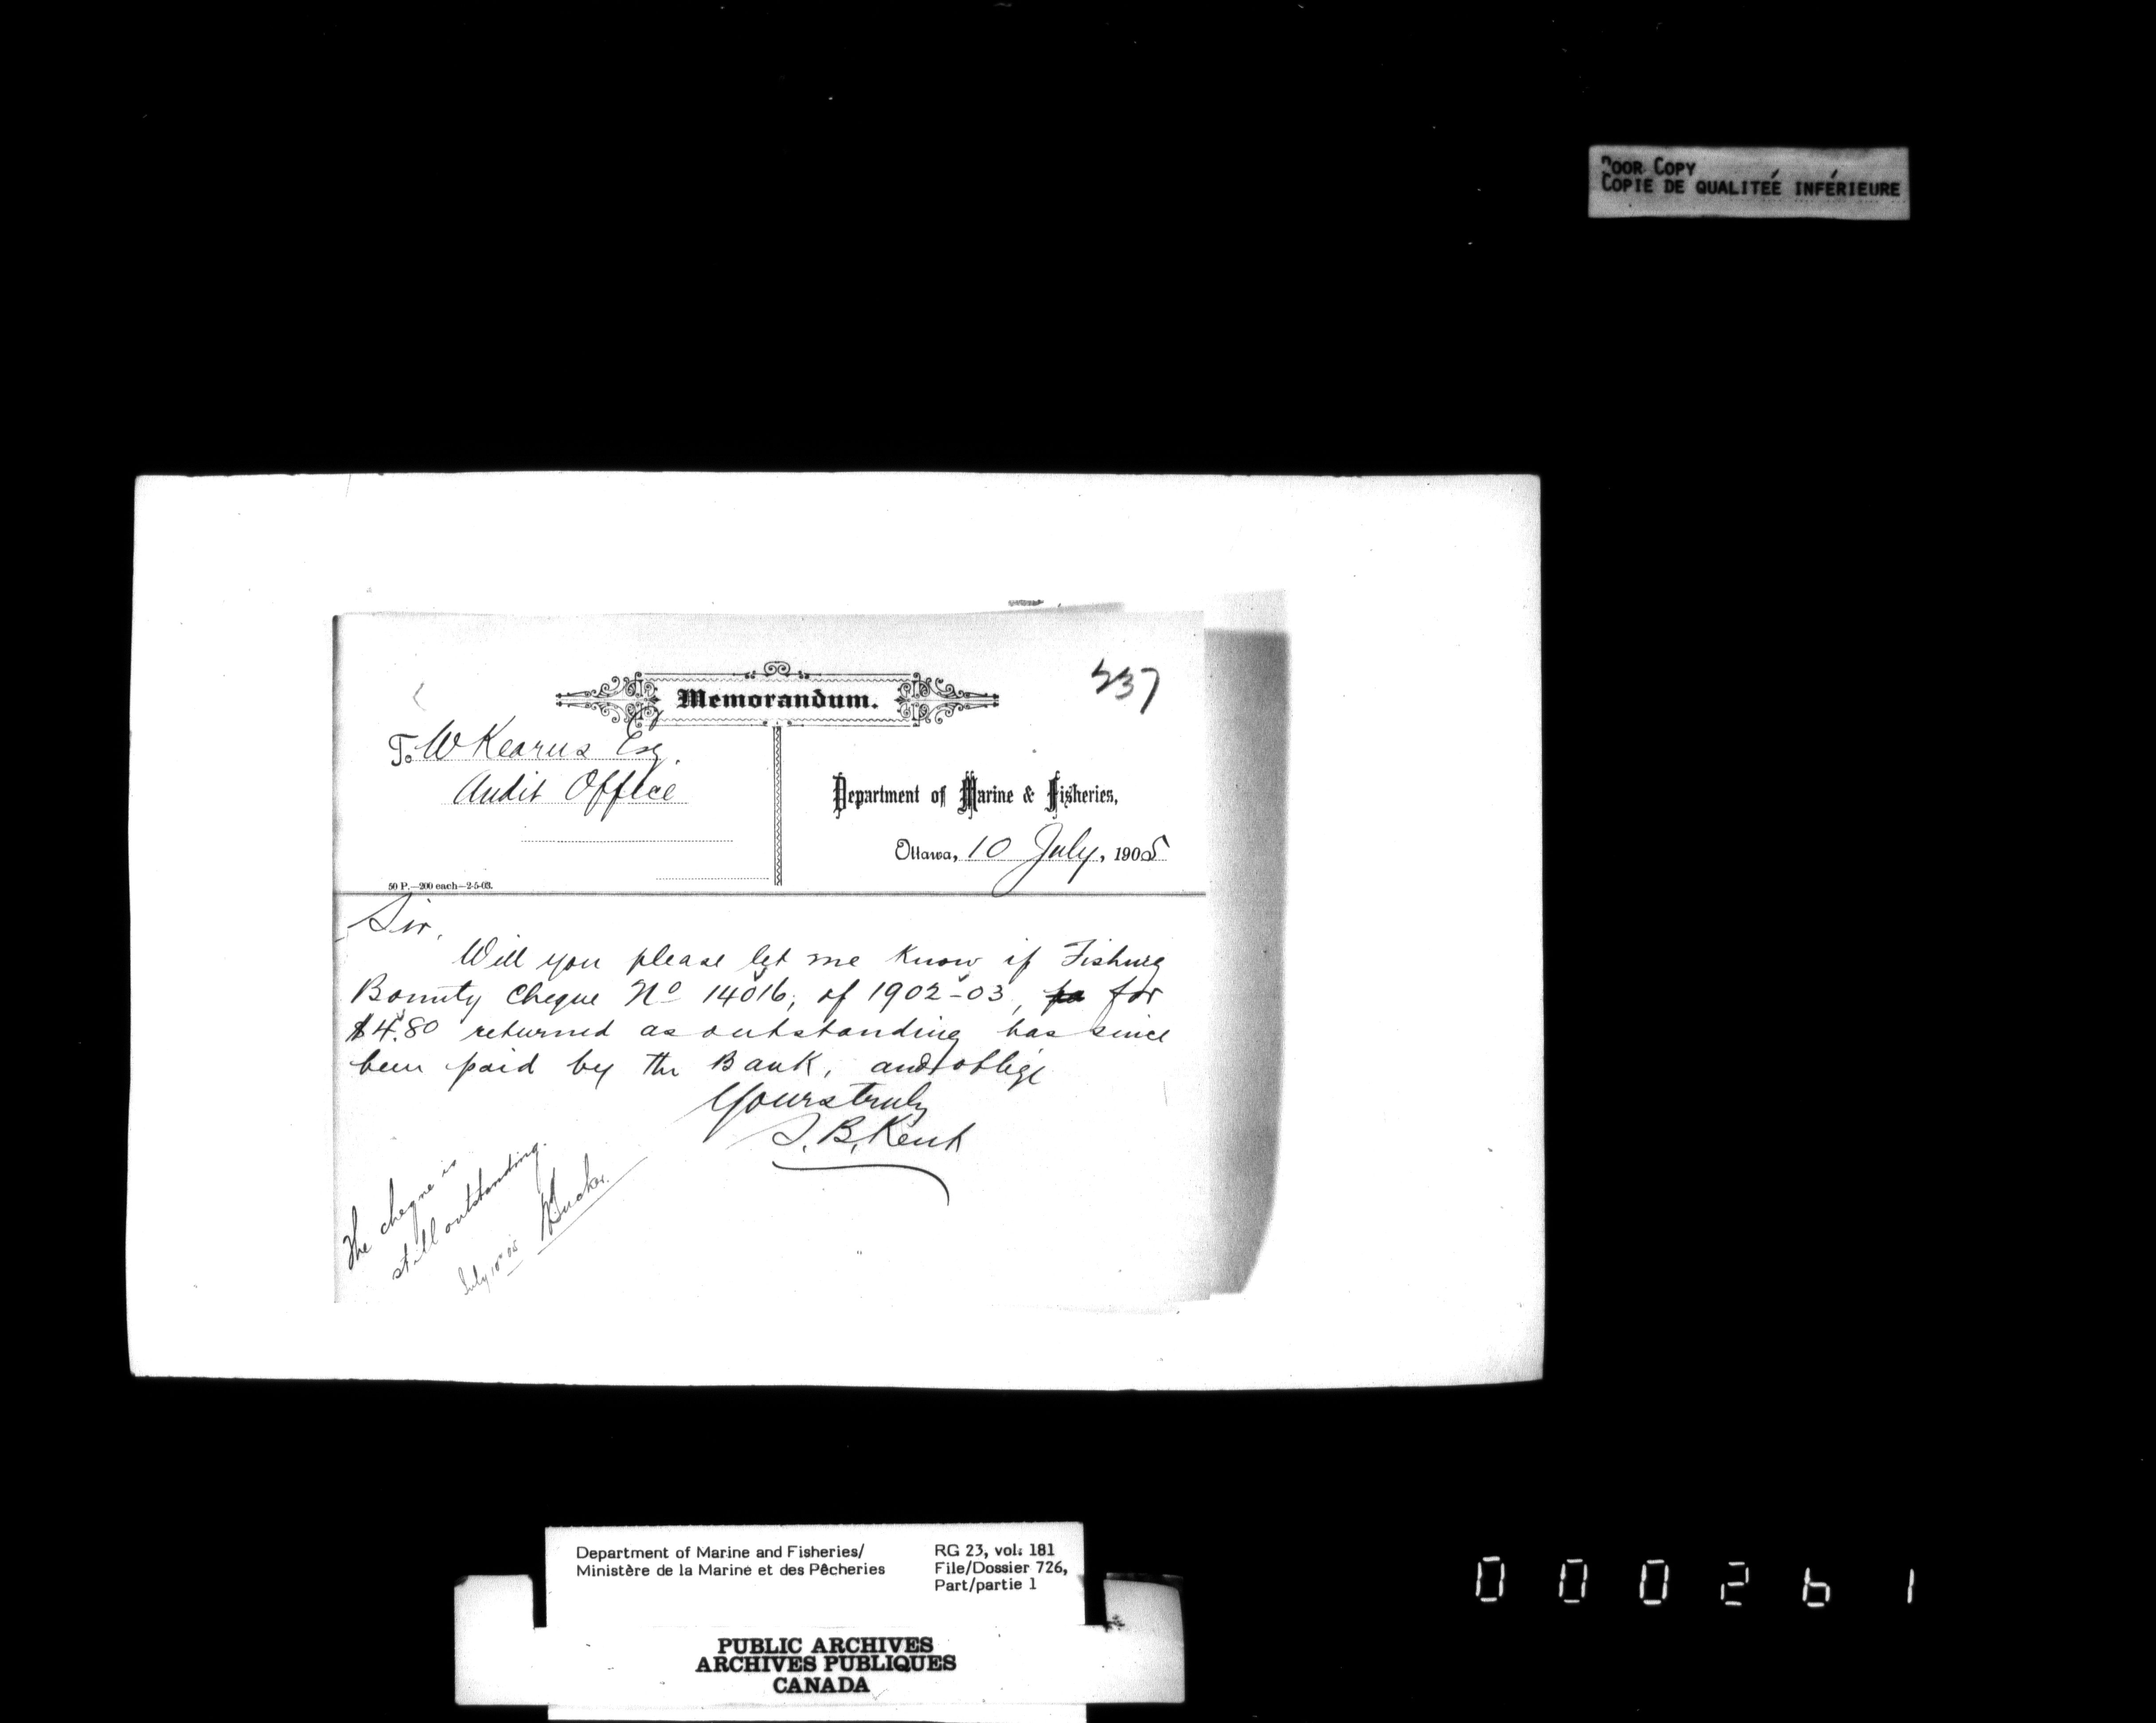 POOR COPY
COPIE DE QUALITEÉ INFÉRIEURE
237
Memorandum.
To W Kearns Esq.
Audit Office
Department of Marine & Fisheries,
Ottawa, 10 July, 1905
50 P.—200 each—2-5-03.
Sir,
Will you please let me know if Fishing
Bounty Cheque No 14016, of 1902-03, for
$4.80 returned as outstanding has since
been paid by the Bank, and oblige
Yours truly
J. B. Kent
The cheque is
still outstanding.
July 10" 05
Department of Marine and Fisheries/
Ministère de la Marine et des Pêcheries
RG 23, vol. 181
File/Dossier 726,
Part/partie 1
PUBLIC ARCHIVES
ARCHIVES PUBLIQUES
CANADA
000261